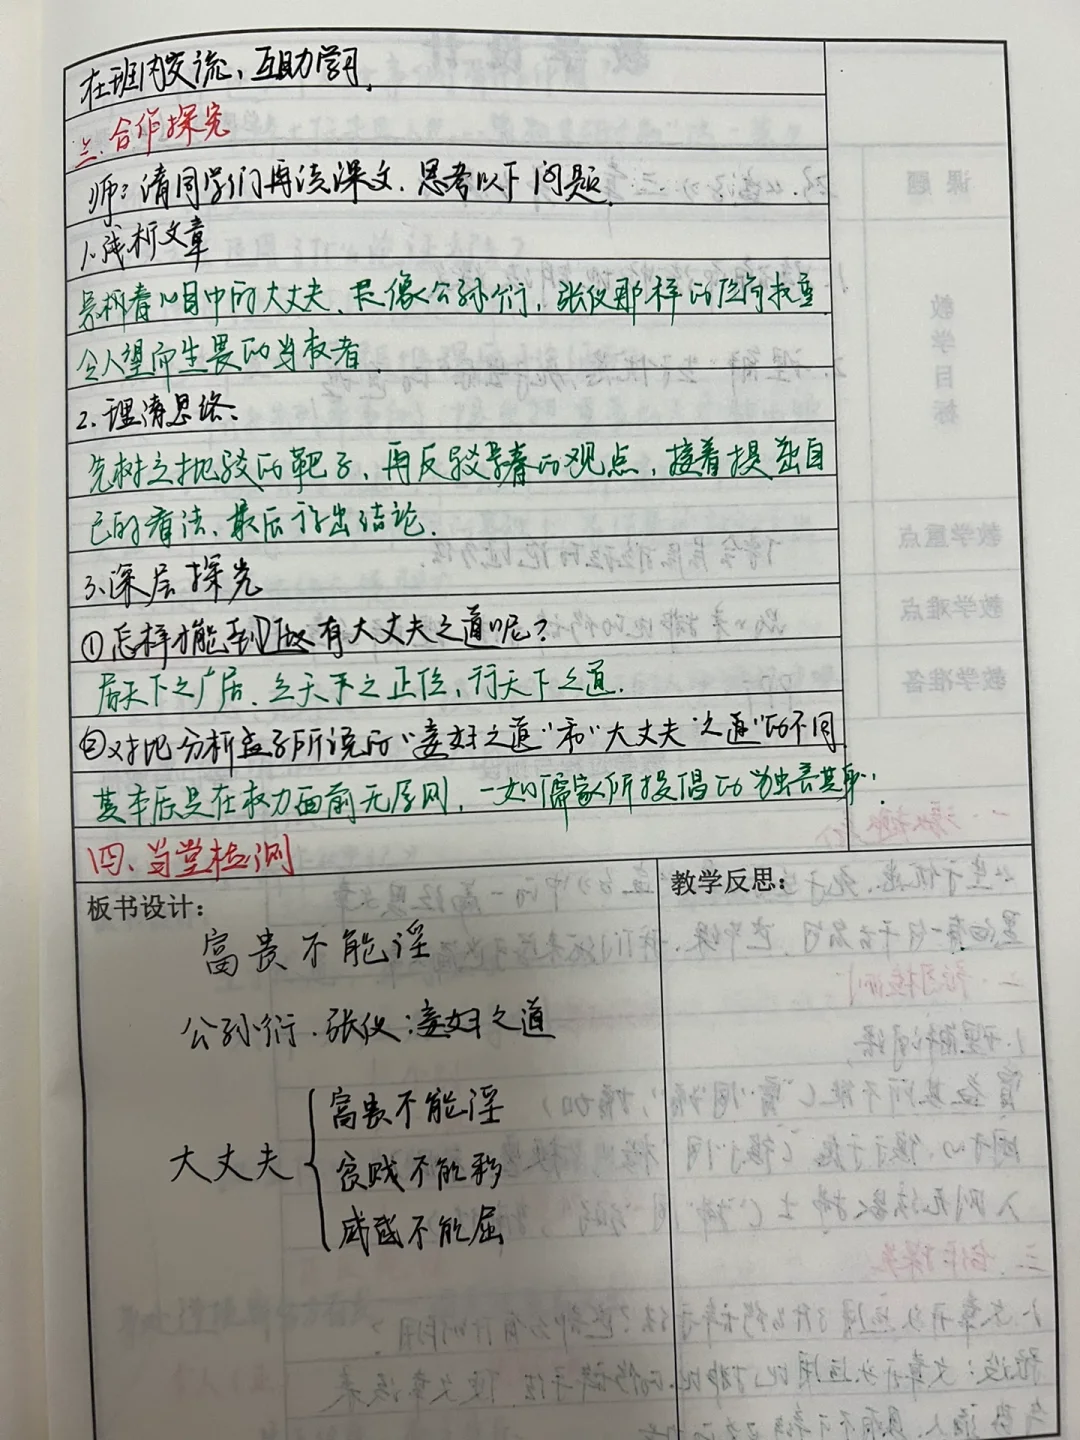 在班内交流，互助学习。
三、合作探究
师：请同学们再读课文，思考以下问题。
1.浅析文章
景春心目中的大丈夫，是像公孙衍，张仪那样的位高权重
令人望而生畏的当权者
2.理清思络：
先树立批驳的靶子，再反驳景春的观点，接着提出自
己的看法，最后得出结论。
3.深层探究
①怎样才能到做有大丈夫之道呢？
居天下之广居，立天下之正位，行天下之道。
②对比分析孟子所说的"妾妇之道"和"大丈夫"之道"的不同
其本质是在权力面前无原则，一如儒家所提倡的"独善其身"。
四、当堂检测
板书设计：
富贵不能淫
公孙衍、张仪：妾妇之道
大丈夫
富贵不能淫
贫贱不能移
威武不能屈
教学反思：